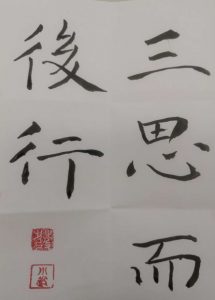 三思而
後行